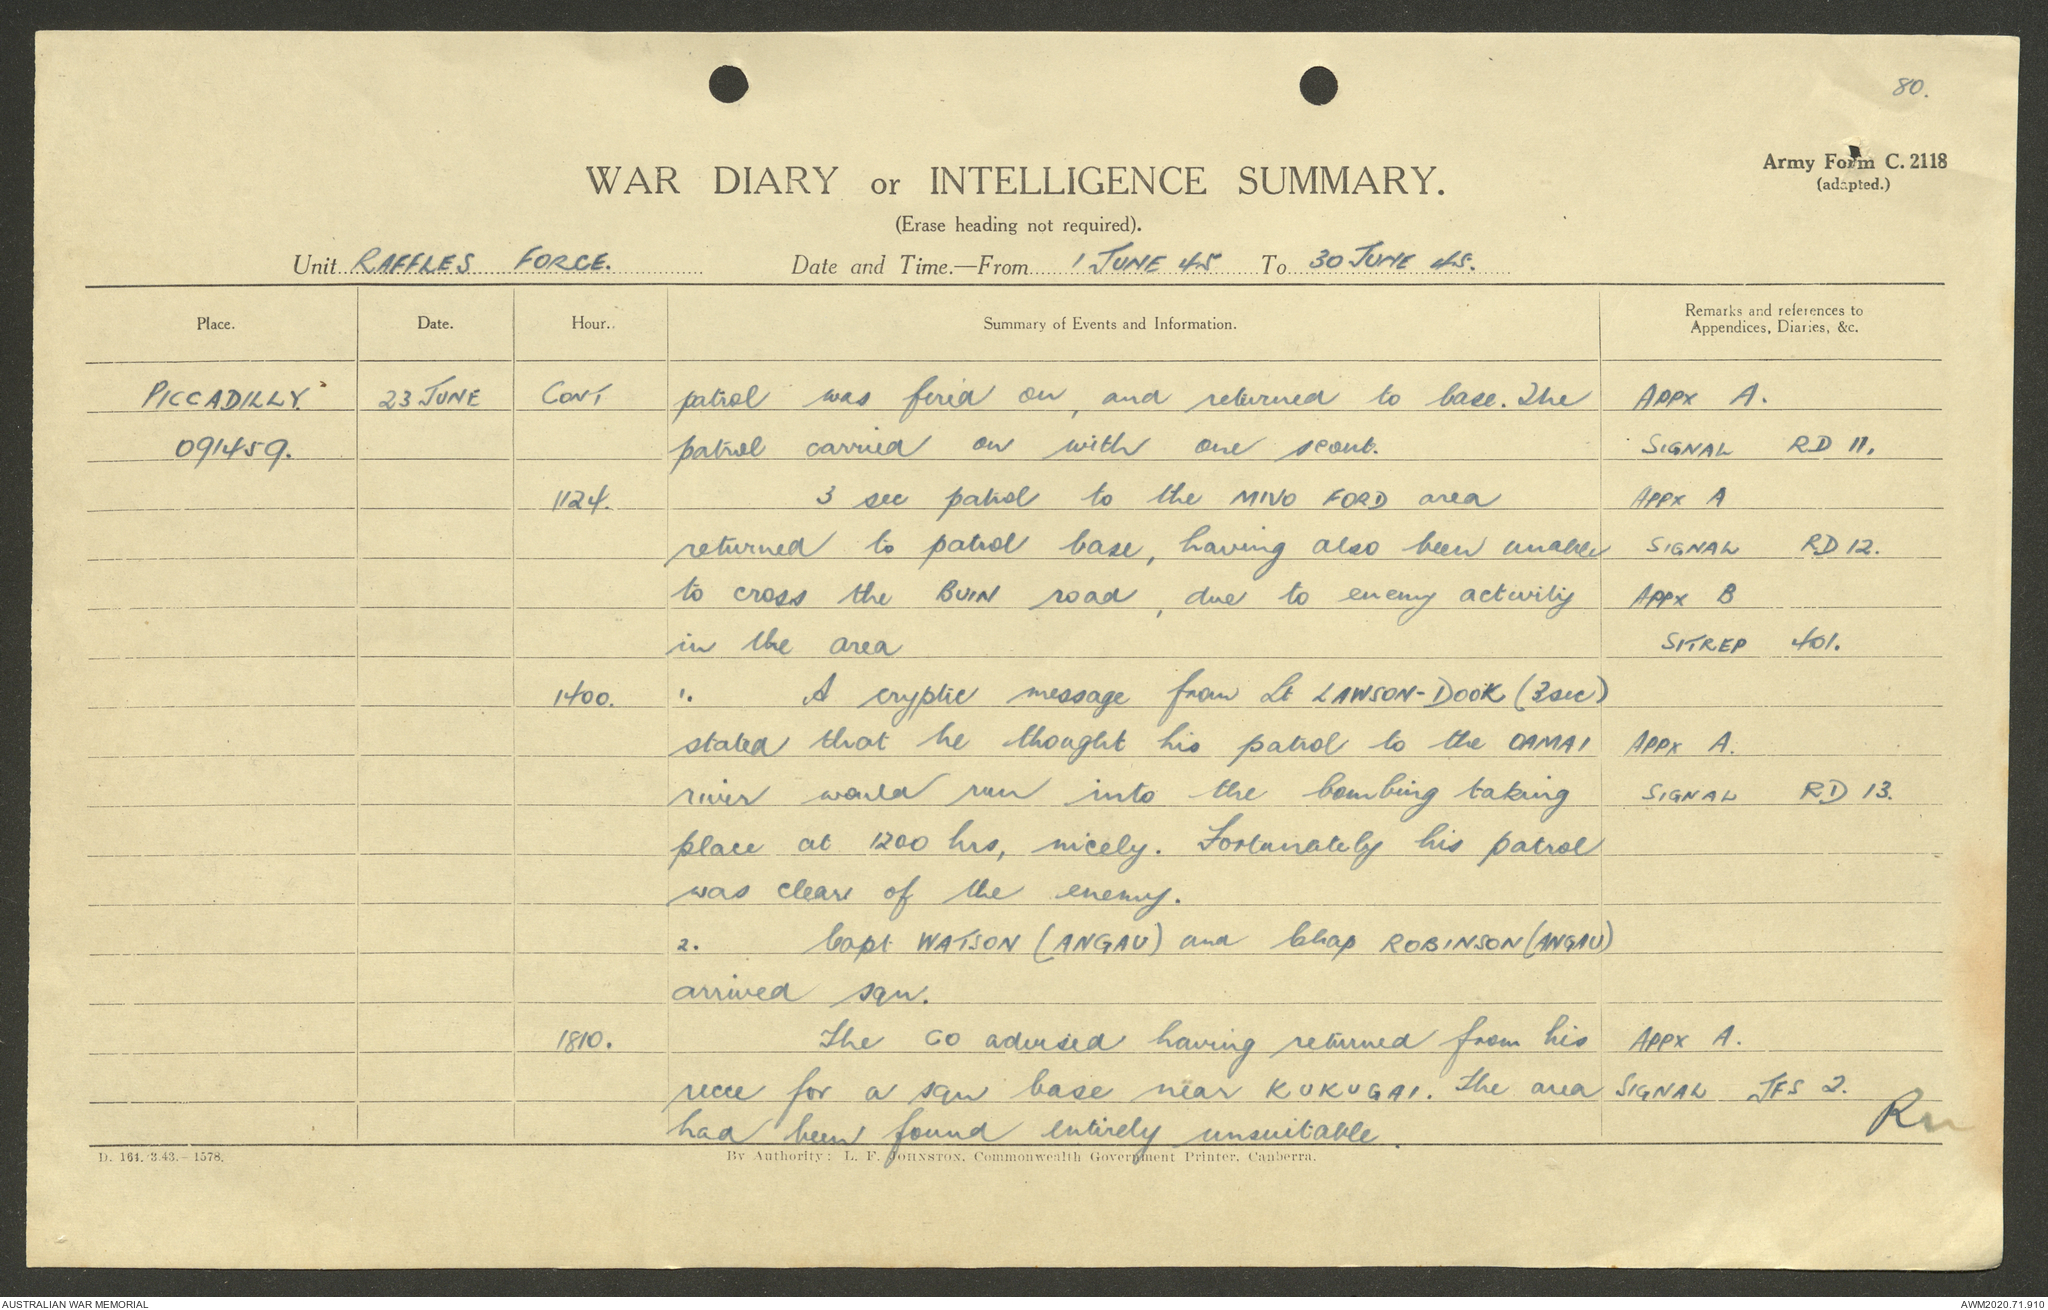 80.
Army Form C. 2118
(adapted.)
WAR DIARY or INTELLIGENCE SUMMARY.
(Erase heading not required).
Unit RAFFLES FORCE. Date and Time.—From 1 JUNE 45 To 30 JUNE 45.
Place. Date. Hour. Summary of Events and Information. Remarks and references to
Appendices, Diaries, &c.
PICCADILLY 23 JUNE CONT patrol was fired on, and returned to base. The APPX A.
091459. patrol carried on with one scout. SIGNAL RD 11.
1124. 3 sec patrol to the MIVO FORD area APPX A
returned to patrol base, having also been unable SIGNAL RD 12.
to cross the BUIN road, due to enemy activity APPX B
in the area SITREP 401.
1400. 1. A cryptic message from Lt LAWSON-DOOK (3 sec)
stated that he thought his patrol to the OAMAI APPX A.
river would run into the bombing taking SIGNAL RD 13.
place at 1200 hrs, nicely. Fortunately his patrol
was clear of the enemy.
2. Capt WATSON (ANGAU) and Chap ROBINSON (ANGAU)
arrived sqn.
1810. The CO advised having returned from his APPX A.
recce for a sqn base near KUKUGAI. The area SIGNAL JFS 2.
had been found entirely unsuitable.
D. 164. 3.43.— 1578. By Authority: L. F. JOHNSTON, Commonwealth Government Printer, Canberra.
AUSTRALIAN WAR MEMORIAL AWM2020.71.910